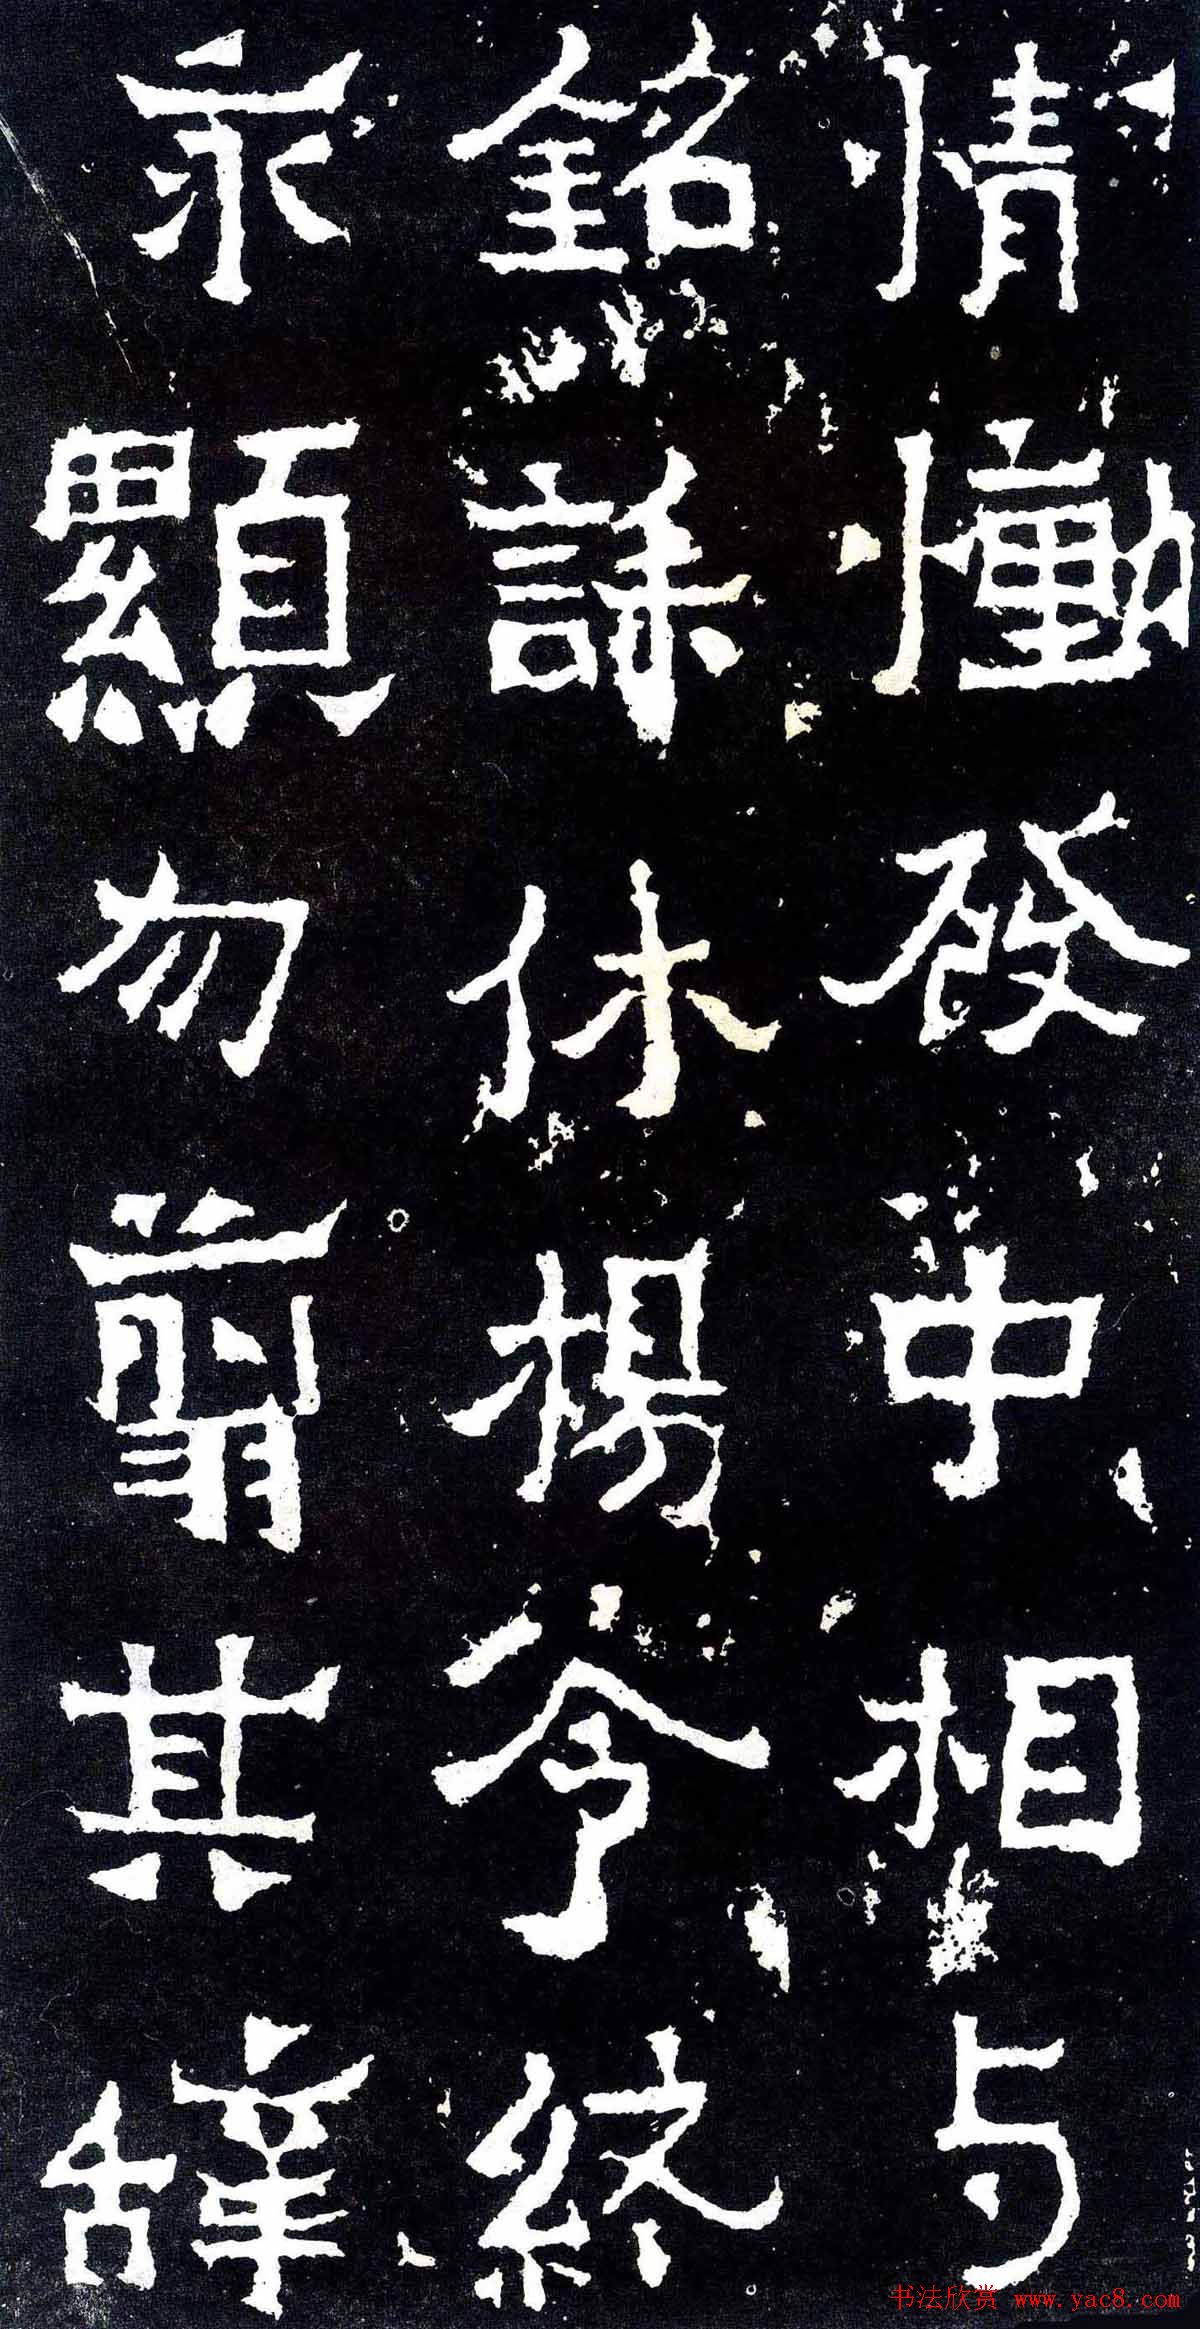 情慟發中相与
銘誄休揚令終
永顯勿翦其辭
书法欣赏 www.yac8.com